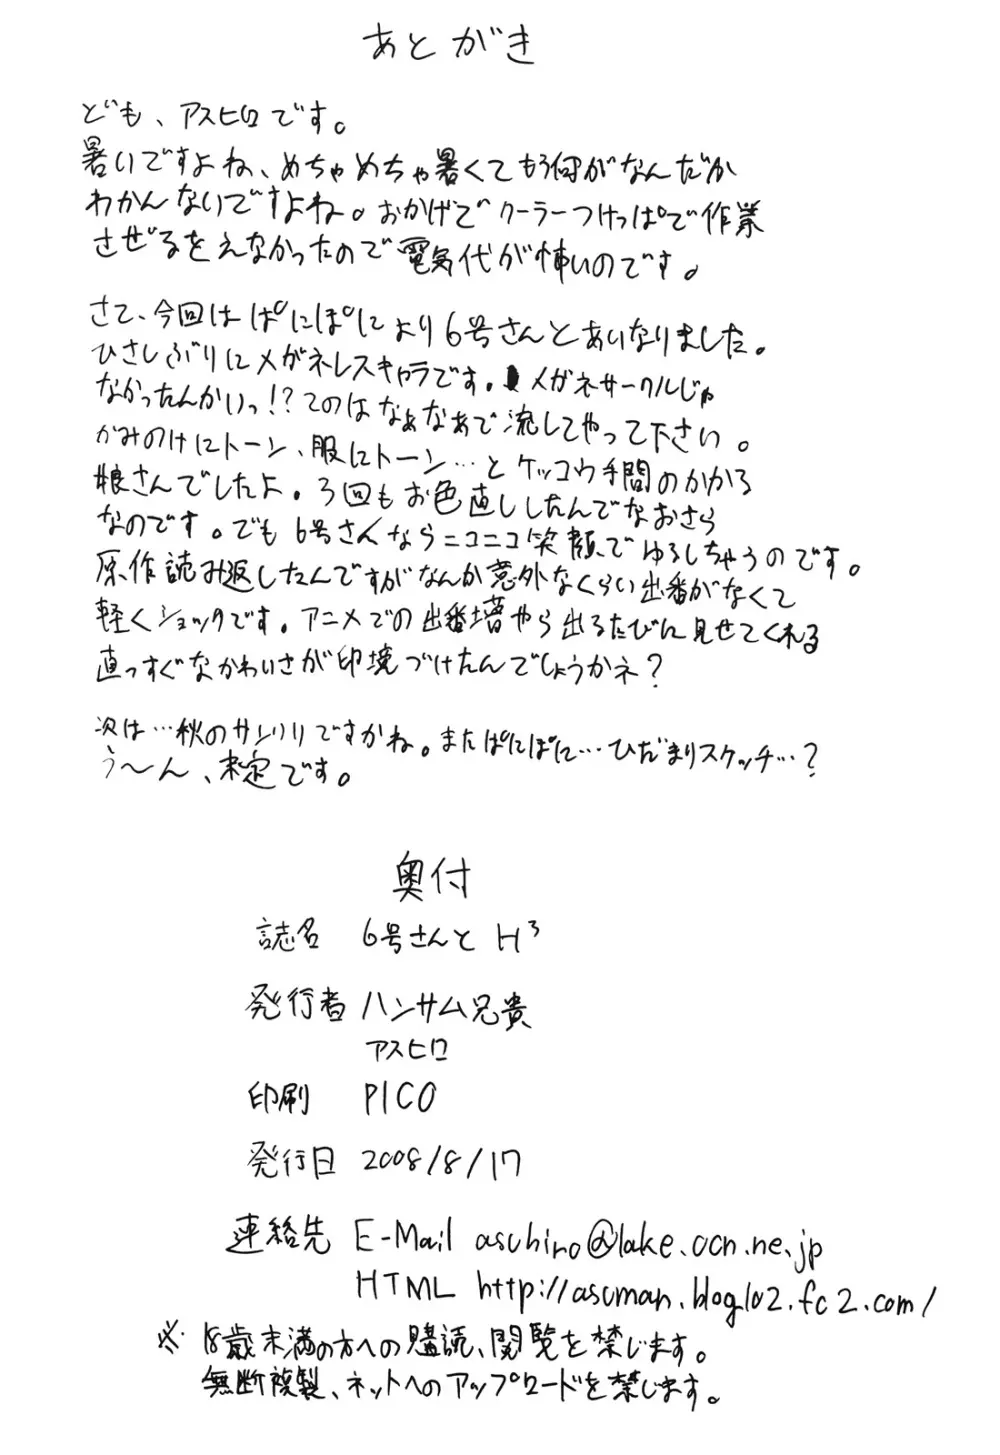 あとがき
ども、アスヒロです。
暑いですよね、めちゃめちゃ暑くてもう何がなんだか
わかんないですよね。おかげでクーラーつけっぱで作業
させざるをえなかったので電気代が怖いのです。
さて、今回はぱにぽにより6号さんとあいなりました。
ひさしぶりにメガネレスキャラです。メガネサークルじゃ
なかったんかいっ!?てのはなぁなあで流してやって下さい。
かみのけにトーン、服にトーン…とケッコウ手間のかかる
娘さんでしたよ。3回もお色直ししたんでなおさら
なのです。でも6号さんならニコニコ笑顔でゆるしちゃうのです。
原作読み返したんですがなんか意外なくらい出番がなくて
軽くショックです。アニメでの出番増やら出るたびに見せてくれる
直っすぐなかわいさが印境づけたんでしょうかネ?
次は…秋のサンクリですかね。またぱにぽに…ひだまりスケッチ…?
う〜ん、未定です。
奥付
誌名 6号さんとH³
発行者 ハンサム兄貴
アスヒロ
印刷 PICO
発行日 2008/8/17
連絡先 E-Mail asuhiro@lake.ocn.ne.jp
HTML http://asuman.blog102.fc2.com/
※ 18歳未満の方への購読、閲覧を禁じます。
無断複製、ネットへのアップロードを禁じます。